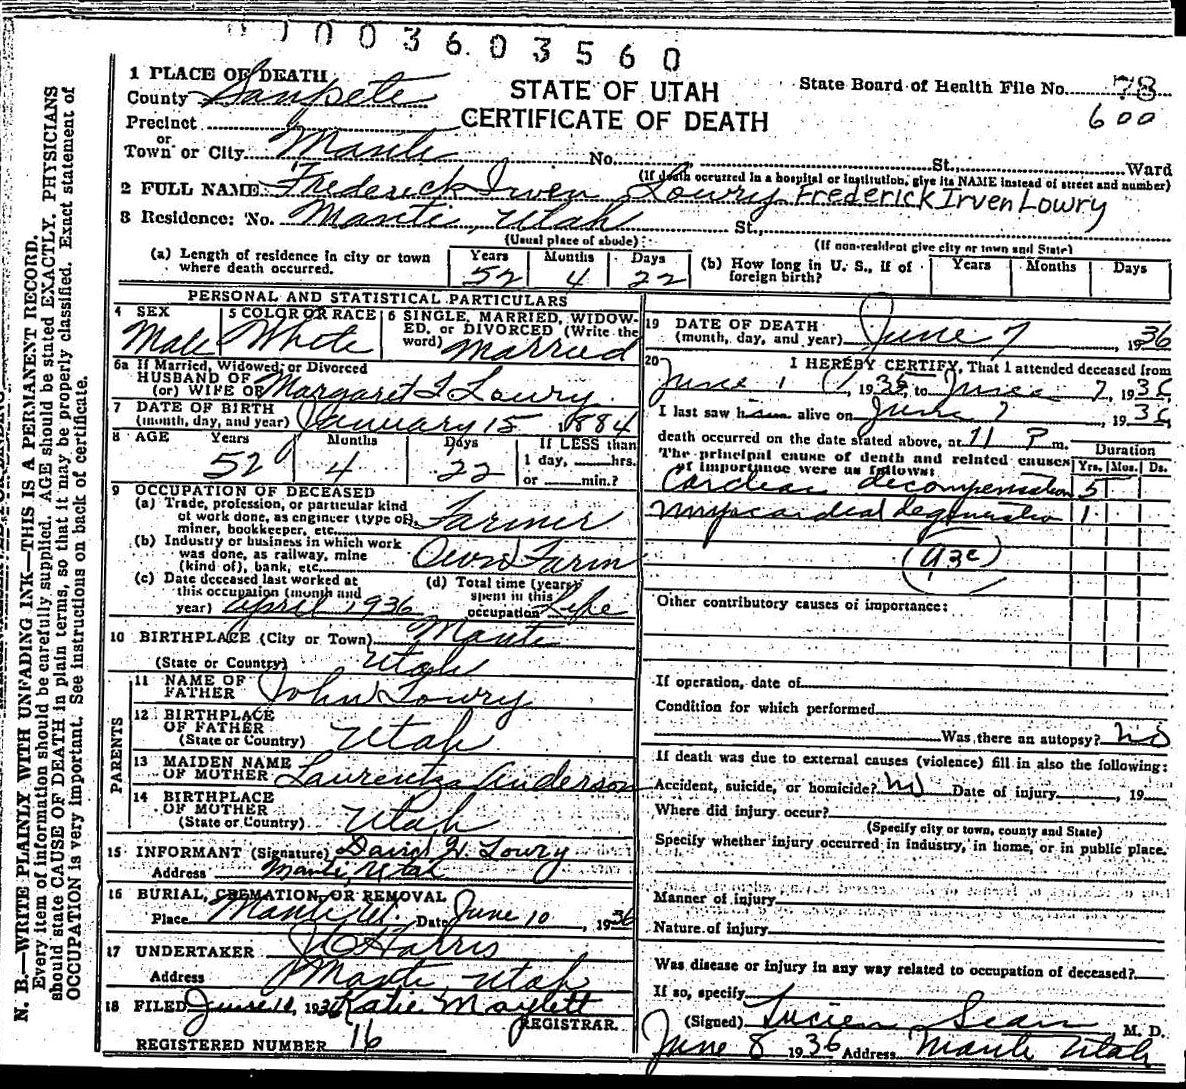 0 1 0 0 3 6 0 3 5 6 0
STATE OF UTAH
CERTIFICATE OF DEATH
State Board of Health File No. 78
600
1 PLACE OF DEATH
County Sanpete
Precinct
or
Town or City Manti No. St., Ward
(If death occurred in a hospital or institution, give its NAME instead of street and number)
2 FULL NAME Frederick Irven Lowry Frederick Irven Lowry
3 Residence: No. Manti, Utah St.,
(Usual place of abode) (If non-resident give city or town and State)
(a) Length of residence in city or town where death occurred. Years 52 Months 4 Days 22
(b) How long in U. S., if of foreign birth? Years Months Days
PERSONAL AND STATISTICAL PARTICULARS
4 SEX Male
5 COLOR OR RACE White
6 SINGLE, MARRIED, WIDOW-
ED, or DIVORCED (Write the
word) Married
6a If Married, Widowed, or Divorced
HUSBAND OF
(or) WIFE OF Margaret F Lowry
7 DATE OF BIRTH
(month, day, and year) January 15 1884
8 AGE Years 52 Months 4 Days 22
If LESS than
1 day, hrs.
or min.?
9 OCCUPATION OF DECEASED
(a) Trade, profession, or particular kind
of work done, as engineer (type of),
miner, bookkeeper, etc. Farmer
(b) Industry or business in which work
was done, as railway, mine
(kind of), bank, etc. Own Farm
(c) Date deceased last worked at
this occupation (month and
year) April 1936
(d) Total time (years)
spent in this
occupation Life
10 BIRTHPLACE (City or Town) Manti
(State or Country) Utah
PARENTS
11 NAME OF
FATHER John Lowry
12 BIRTHPLACE
OF FATHER
(State or Country) Utah
13 MAIDEN NAME
OF MOTHER Laurentza Anderson
14 BIRTHPLACE
OF MOTHER
(State or Country) Utah
15 INFORMANT (Signature) David H. Lowry
Address Manti Utah
16 BURIAL, CREMATION, OR REMOVAL
Place Manti Ut. Date June 10, 1936
17 UNDERTAKER Harris
Address Manti Utah
18 FILED June 10, 1936 Katie Maylett
REGISTRAR.
REGISTERED NUMBER 16
19 DATE OF DEATH
(month, day, and year) June 7, 1936
20 I HEREBY CERTIFY, That I attended deceased from
June 1, 1936, to June 7, 1936
I last saw him alive on June 7, 1936
death occurred on the date stated above, at 11 P m.
The principal cause of death and related causes
of importance were as follows:
Duration
Yrs. Mos. Ds.
Cardiac decompensation 5
Myocardial degeneration 1
(93c)
Other contributory causes of importance:
If operation, date of
Condition for which performed
Was there an autopsy? No
If death was due to external causes (violence) fill in also the following:
Accident, suicide, or homicide? No Date of injury, 19
Where did injury occur?
(Specify city or town, county and State)
Specify whether injury occurred in industry, in home, or in public place.
Manner of injury
Nature of injury
Was disease or injury in any way related to occupation of deceased?
If so, specify
(Signed) Lucien Sears M. D.
June 8 1936 Address Manti Utah
N. B.—WRITE PLAINLY WITH UNFADING INK—THIS IS A PERMANENT RECORD.
Every item of information should be carefully supplied. AGE should be stated EXACTLY. PHYSICIANS
should state CAUSE OF DEATH in plain terms, so that it may be properly classified. Exact statement of
OCCUPATION is very important. See instructions on back of certificate.